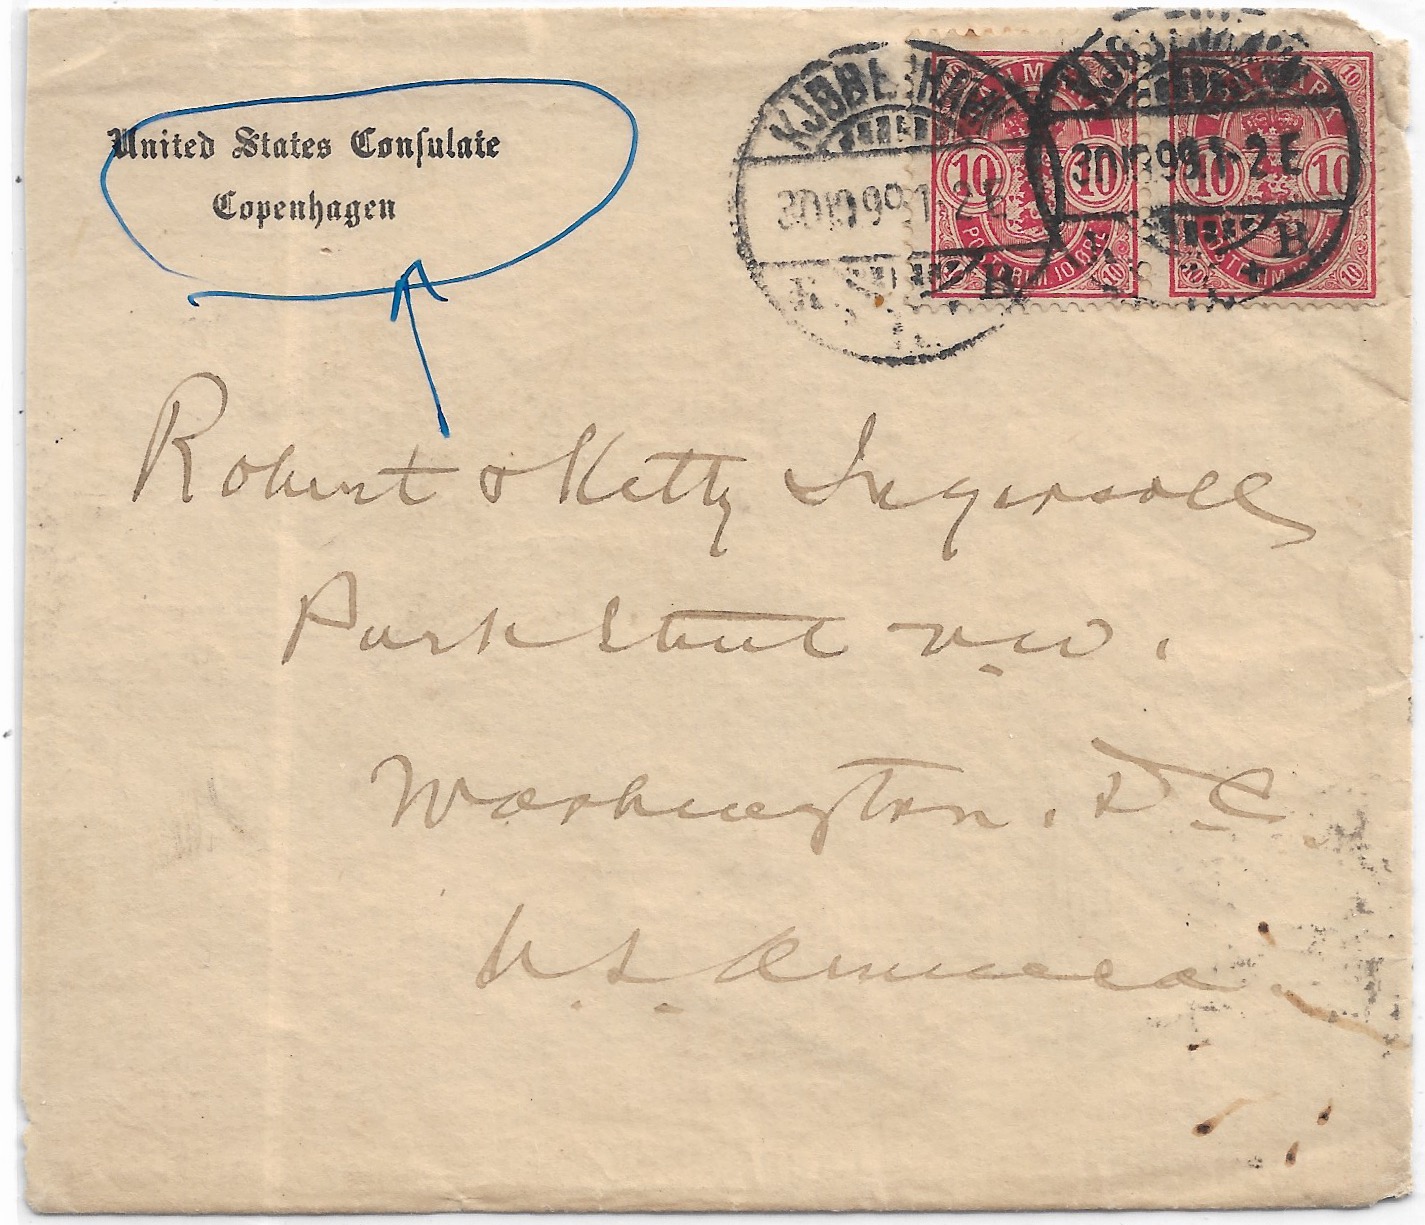 United States Consulate
Copenhagen
KJØBENHAVN
30 10 99 1-2 E
B
30 10 99 1-2 E
B
10 10
POSTFRIM 10 ØRE
10 10
Robert & Kitty Ingersoll
Park Street N.W.
Washington. D.C.
U.S. America.